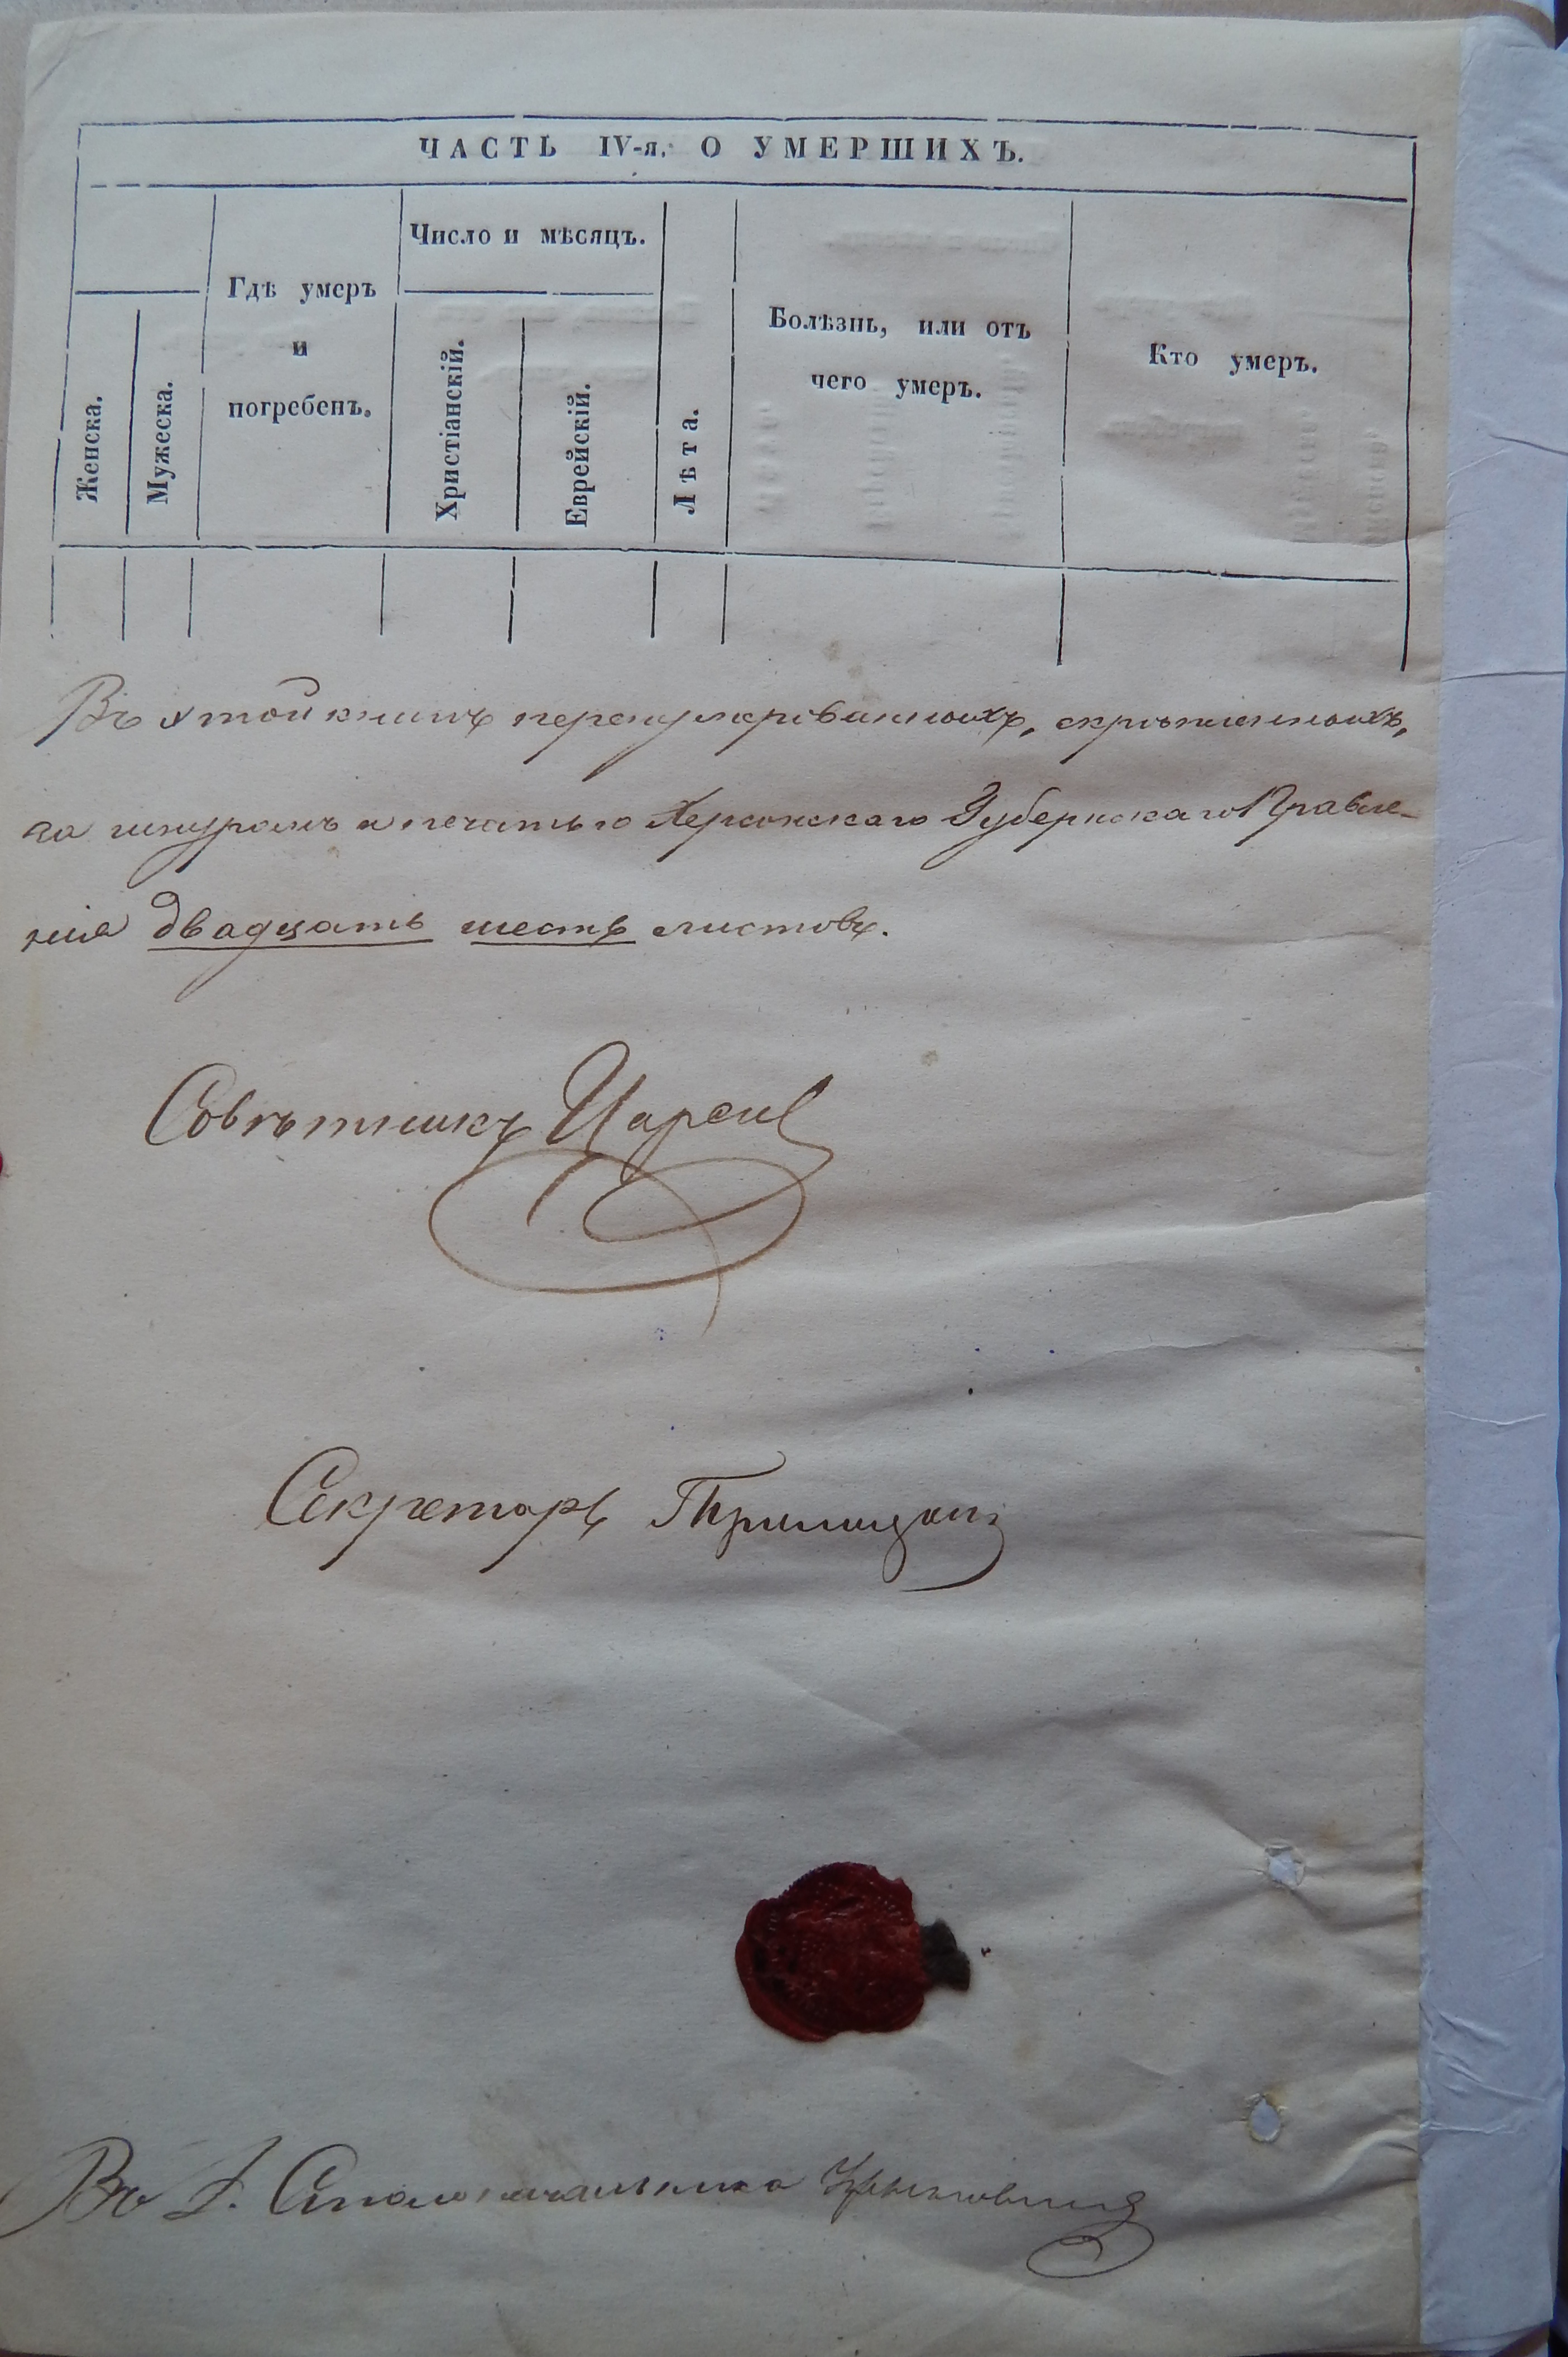 ЧАСТЬ IV-я. О УМЕРШИХЪ.
Женска.
Мужеска.
Гдѣ умеръ
и
погребенъ.
Число и мѣсяцъ.
Христіанскій.
Еврейскій.
Лѣта.
Болѣзнь, или отъ
чего умеръ.
Кто умеръ.
Въ этой книгѣ перенумерованныхъ, скрѣпленныхъ,
за шнуромъ и печатью Херсонскаго Губернскаго Правле-
нія двадцать шесть листовъ.
Совѣтникъ
Секретарь
Въ д. Столоначальника